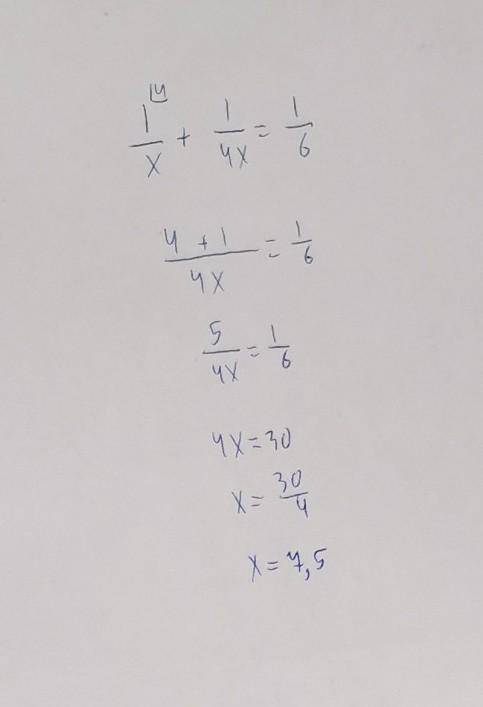 1/x⌊4 + 1/4x = 1/6
4 + 1/4x = 1/6
5/4x = 1/6
4x = 30
x = 30/4
x = 7,5